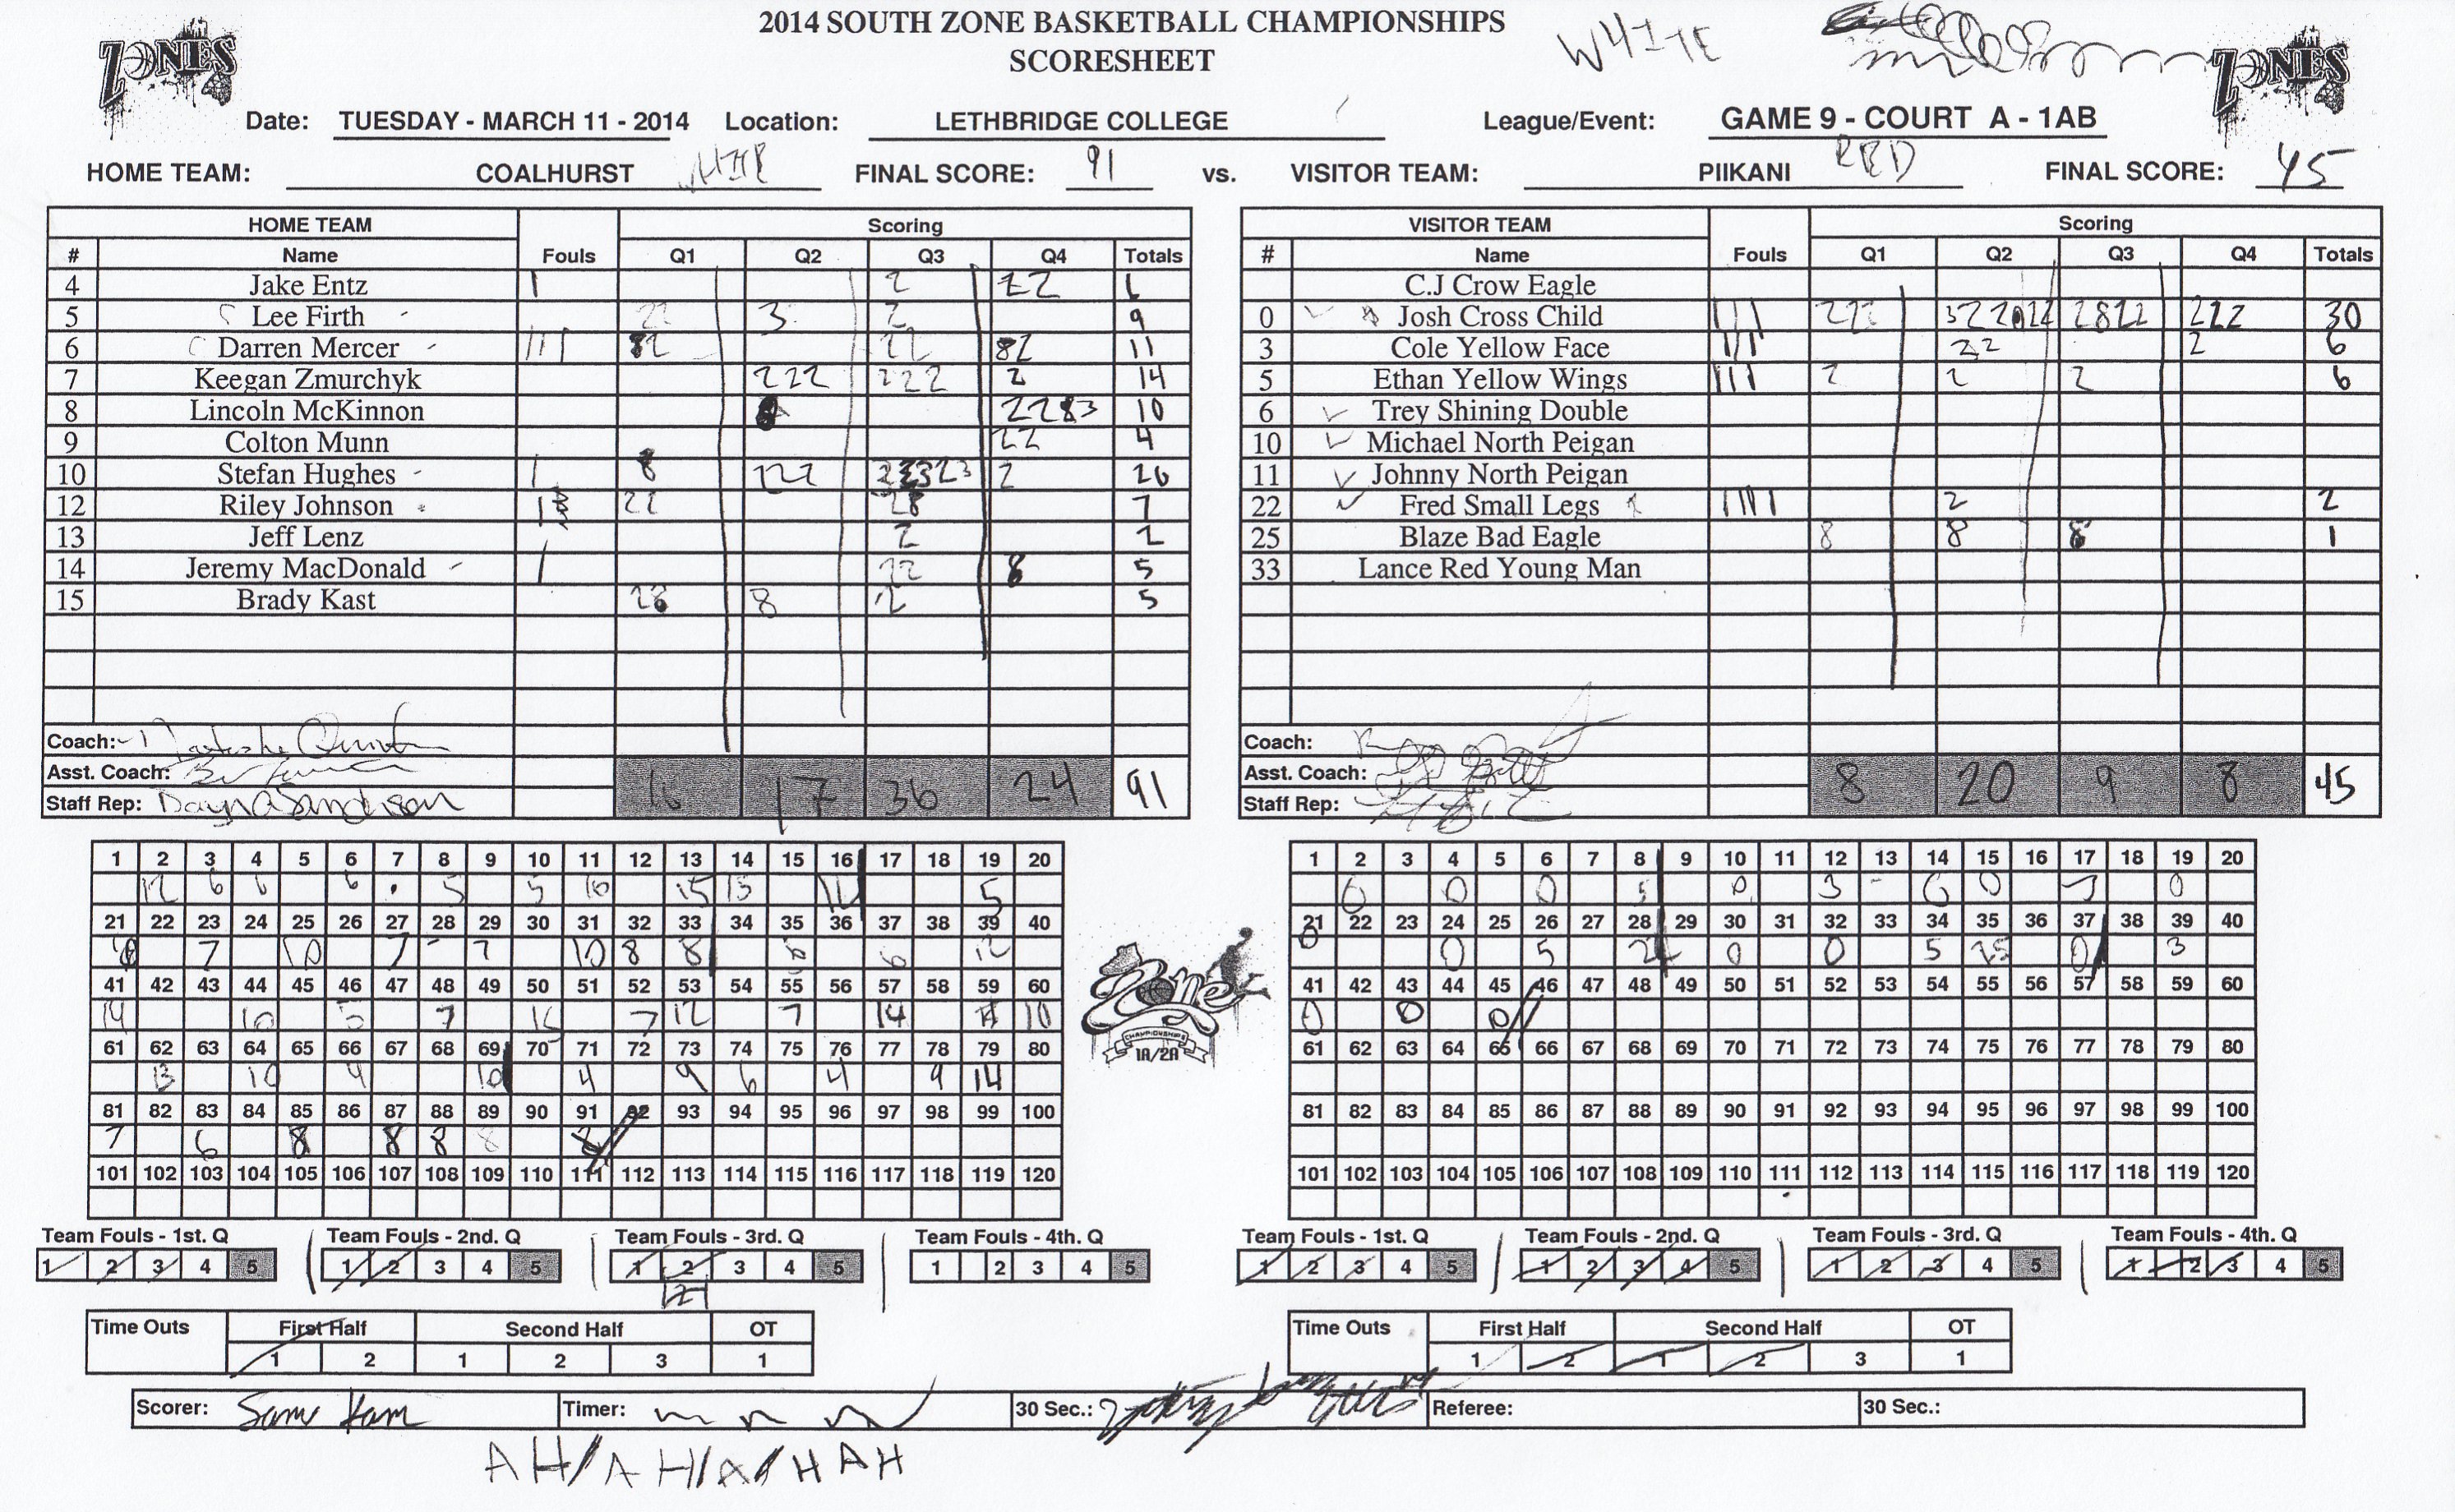 2014 SOUTH ZONE BASKETBALL CHAMPIONSHIPS
SCORESHEET
WHITE
ZONES ZONES
Date: TUESDAY - MARCH 11 - 2014 Location: LETHBRIDGE COLLEGE League/Event: GAME 9 - COURT A - 1AB
HOME TEAM: COALHURST FINAL SCORE: 91 vs. VISITOR TEAM: PIIKANI RED FINAL SCORE: 45
HOME TEAM Fouls Scoring VISITOR TEAM Fouls Scoring
# Name Q1 Q2 Q3 Q4 Totals # Name Q1 Q2 Q3 Q4 Totals
4 Jake Entz 2 22 6 C.J Crow Eagle
5 Lee Firth 22 3 2 9 0 Josh Cross Child 222 2822 222 30
6 Darren Mercer 22 82 11 3 Cole Yellow Face 22 2 6
7 Keegan Zmurchyk 222 222 2 14 5 Ethan Yellow Wings 2 2 2 6
8 Lincoln McKinnon 2283 10 6 Trey Shining Double
9 Colton Munn 22 4 10 Michael North Peigan
10 Stefan Hughes 8 222 2 26 11 Johnny North Peigan
12 Riley Johnson 22 28 7 22 Fred Small Legs 2 2
13 Jeff Lenz 2 2 25 Blaze Bad Eagle 8 8 8 1
14 Jeremy MacDonald 22 8 5 33 Lance Red Young Man
15 Brady Kast 28 8 2 5
Coach: Coach:
Asst. Coach: Asst. Coach:
Staff Rep: Dayna Sandersen Staff Rep:
16 17 36 24 91 8 20 9 8 45
1 2 3 4 5 6 7 8 9 10 11 12 13 14 15 16 17 18 19 20 1 2 3 4 5 6 7 8 9 10 11 12 13 14 15 16 17 18 19 20
12 6 6 6 5 5 10 15 15 5 0 0 0 5 0 3 0 0 0
21 22 23 24 25 26 27 28 29 30 31 32 33 34 35 36 37 38 39 40 21 22 23 24 25 26 27 28 29 30 31 32 33 34 35 36 37 38 39 40
10 7 10 7 7 10 8 8 6 6 12 0 0 5 22 0 0 5 25 0 3
41 42 43 44 45 46 47 48 49 50 51 52 53 54 55 56 57 58 59 60 41 42 43 44 45 46 47 48 49 50 51 52 53 54 55 56 57 58 59 60
14 10 5 7 15 7 12 7 14 10 0 0 0
61 62 63 64 65 66 67 68 69 70 71 72 73 74 75 76 77 78 79 80 61 62 63 64 65 66 67 68 69 70 71 72 73 74 75 76 77 78 79 80
13 10 4 10 4 9 6 4 9 14
81 82 83 84 85 86 87 88 89 90 91 92 93 94 95 96 97 98 99 100 81 82 83 84 85 86 87 88 89 90 91 92 93 94 95 96 97 98 99 100
7 6 8 8 8 8
101 102 103 104 105 106 107 108 109 110 111 112 113 114 115 116 117 118 119 120 101 102 103 104 105 106 107 108 109 110 111 112 113 114 115 116 117 118 119 120
Zone
CHAMPIONSHIPS
1A/2A
Team Fouls - 1st. Q Team Fouls - 2nd. Q Team Fouls - 3rd. Q Team Fouls - 4th. Q Team Fouls - 1st. Q Team Fouls - 2nd. Q Team Fouls - 3rd. Q Team Fouls - 4th. Q
1 2 3 4 5 1 2 3 4 5 1 2 3 4 5 1 2 3 4 5 1 2 3 4 5 1 2 3 4 5 1 2 3 4 5 1 2 3 4 5
2
Time Outs First Half Second Half OT Time Outs First Half Second Half OT
1 2 1 2 3 1 1 2 1 2 3 1
Scorer: Sam Ham Timer: 30 Sec.: Referee: 30 Sec.:
AH/AH/A/HAH